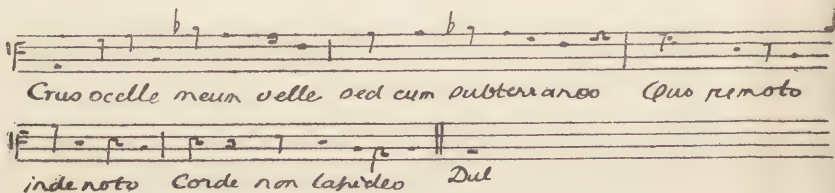 Crus ocelle meum velle sed cum subterraneo Quo remoto
inde noto Corde non lapideo Dul